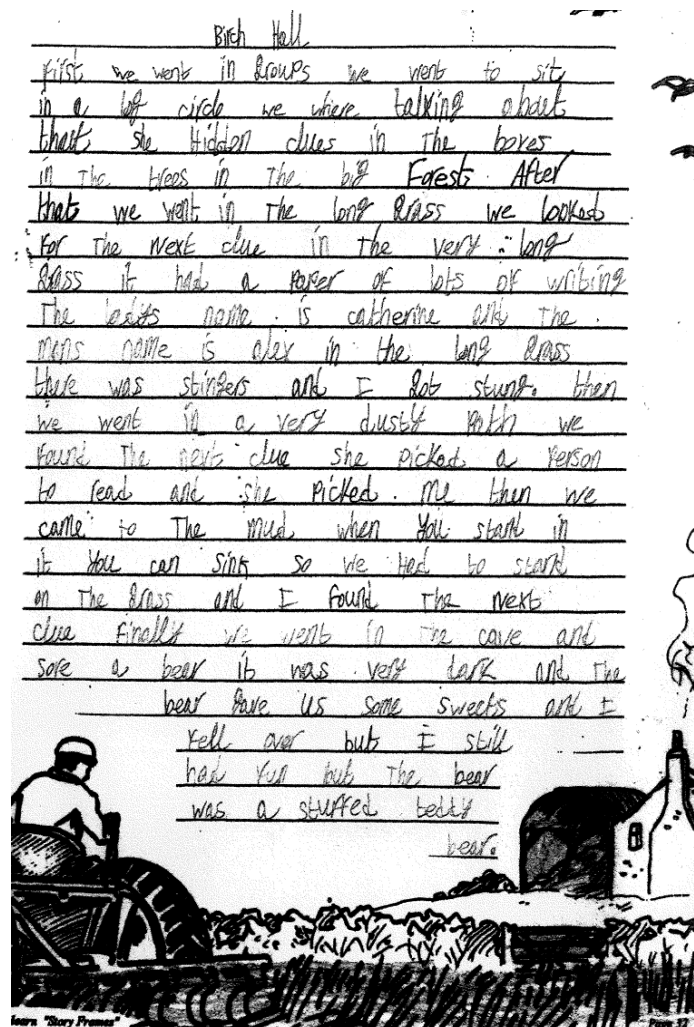 Birch Hall
First we went in Groups we went to sit
in a big circle we where talking about
that she Hidden clues in The boxes
in The trees in The big Forests After
that we went in The long Grass we looked
For The Next clue in The very long
Grass it had a paper of lots of writing
The ladys name is catherine and The
mans name is alex in the long Grass
there was stingers and I Got stung. then
we went in a very dusty Path we
Found The next clue she picked a Person
to read and she Picked me then we
came to The Mud when You stand in
it You can Sink so we Had to stand
on The Grass and I Found The Next
clue Finally we went in The cave and
sore a bear it was very dark and The
bear Gave us some sweets and I
Fell over but I still
had Fun but The bear
was a stuffed teddy
bear.
learn "Story Frames"